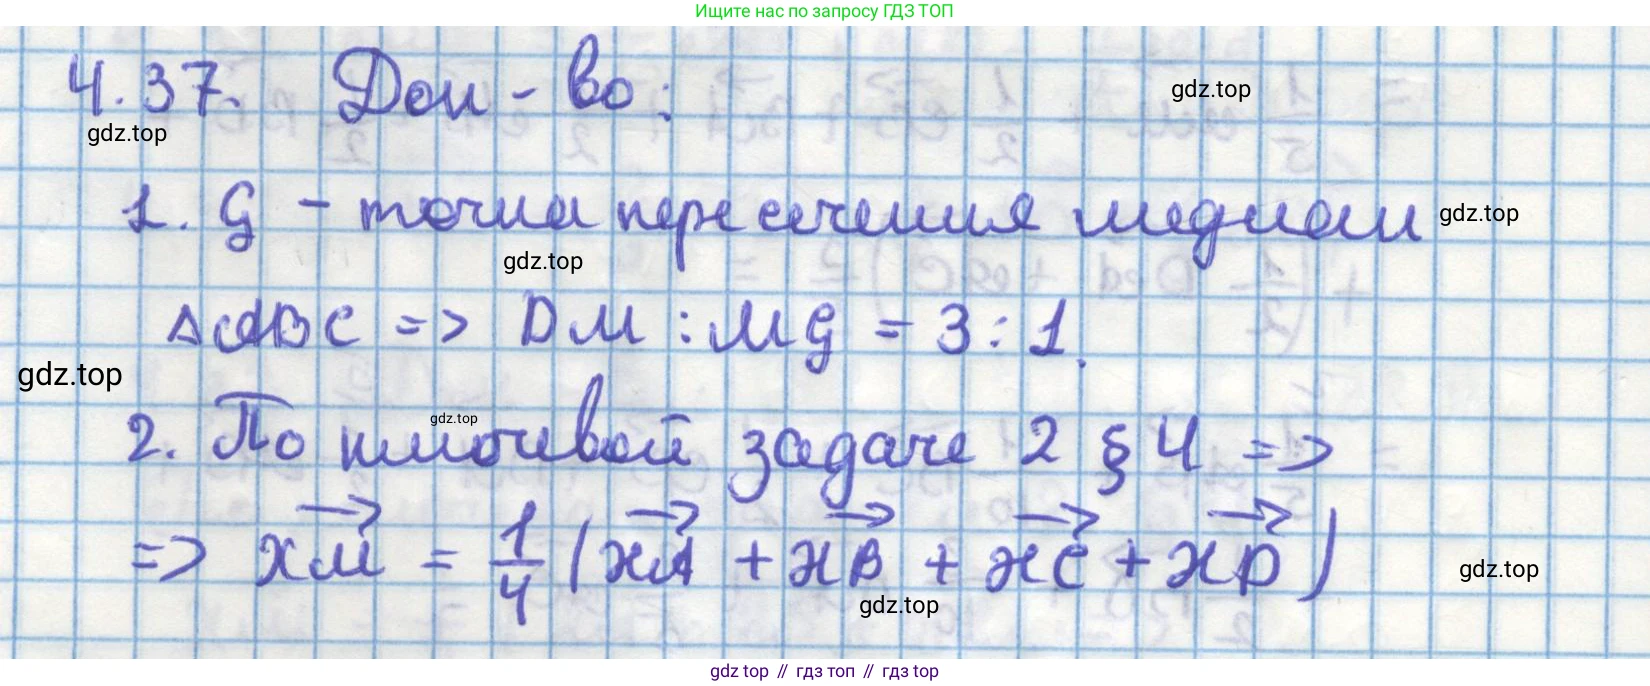 Ищите нас по запросу ГДЗ ТОП
4.37. Док-во:
gdz.top
gdz.top
1. G - точка пересечения медиан
gdz.top
gdz.top
ΔABC => DM : MG = 3 : 1.
gdz.top
gdz.top
2. По ключевой задаче 2 § 4 =>
=> XM = 1/4 (XA + XB + XC + XD)
gdz.top
gdz.top
gdz top // гдз топ // гдз top